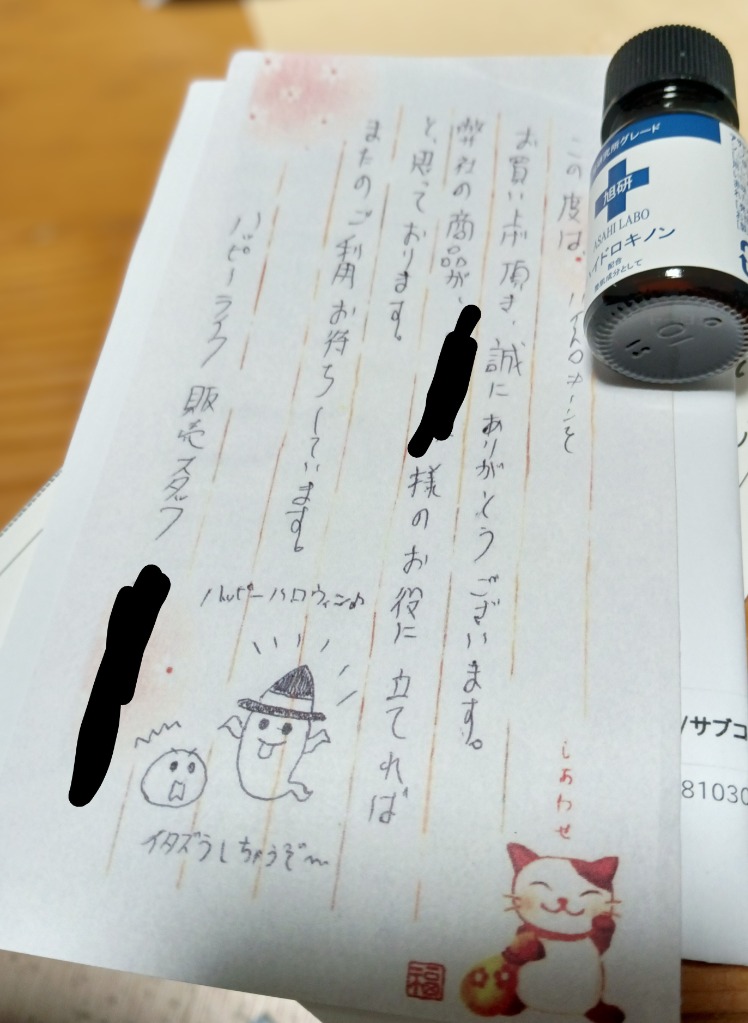 この度は、ハイドロキノンを
お買い上げ頂き、誠にありがとうございます。
弊社の商品が、様のお役に立てれば
と、思っております。
またのご利用お待ちしています。
ハピーライフ 販売スタッフ
ハッピーハロウィン♪
イタズラしちゃうぞ〜
しあわせ
福
研究所グレード
旭研
ASAHI LABO
ハイドロキノン
配合
整肌成分として
/サブコ
81030